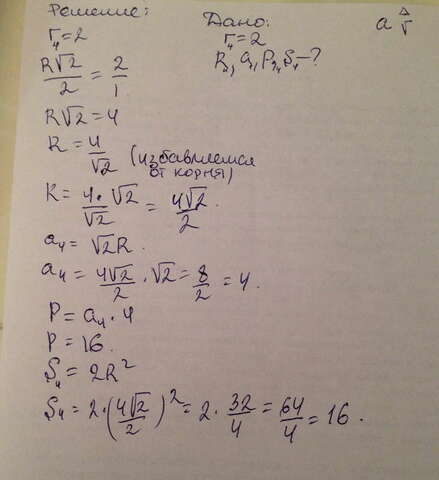 Решение:
r₄=2
R√2/2 = 2/1
R√2=4
R = 4/√2 (избавляемся от корня)
R = 4·√2/√2 = 4√2/2.
a₄ = √2R.
a₄ = 4√2/2 · √2 = 8/2 = 4.
P = a₄ · 4
P = 16.
S₄ = 2R²
S₄ = 2·(4√2/2)² = 2 · 32/4 = 64/4 = 16.
Дано:
r₄=2
R, a₄, P₄, S₄ -?
a
r